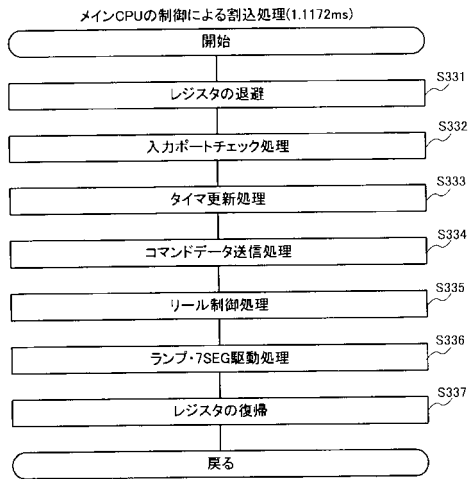 メインCPUの制御による割込処理(1.1172ms)
開始
S331
レジスタの退避
S332
入力ポートチェック処理
S333
タイマ更新処理
S334
コマンドデータ送信処理
S335
リール制御処理
S336
ランプ・7SEG駆動処理
S337
レジスタの復帰
戻る